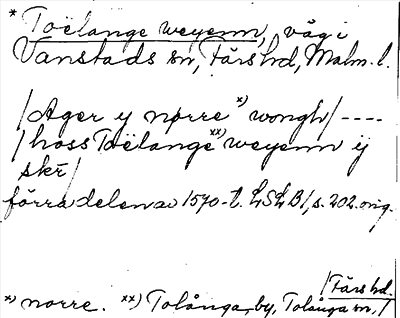 * Toëlange weyenn, väg i
Vanstads sn, Färs hd, Malm. l.
/Ager y nørre *) wongh/ ----
/hoss Toëlange **) weyenn ÿ
skr̄/
förra delen av 1570-t. LSLB1, s. 202. orig.
/Färs hd.
*) norre. **) Tolånga by, Tolånga sn,/